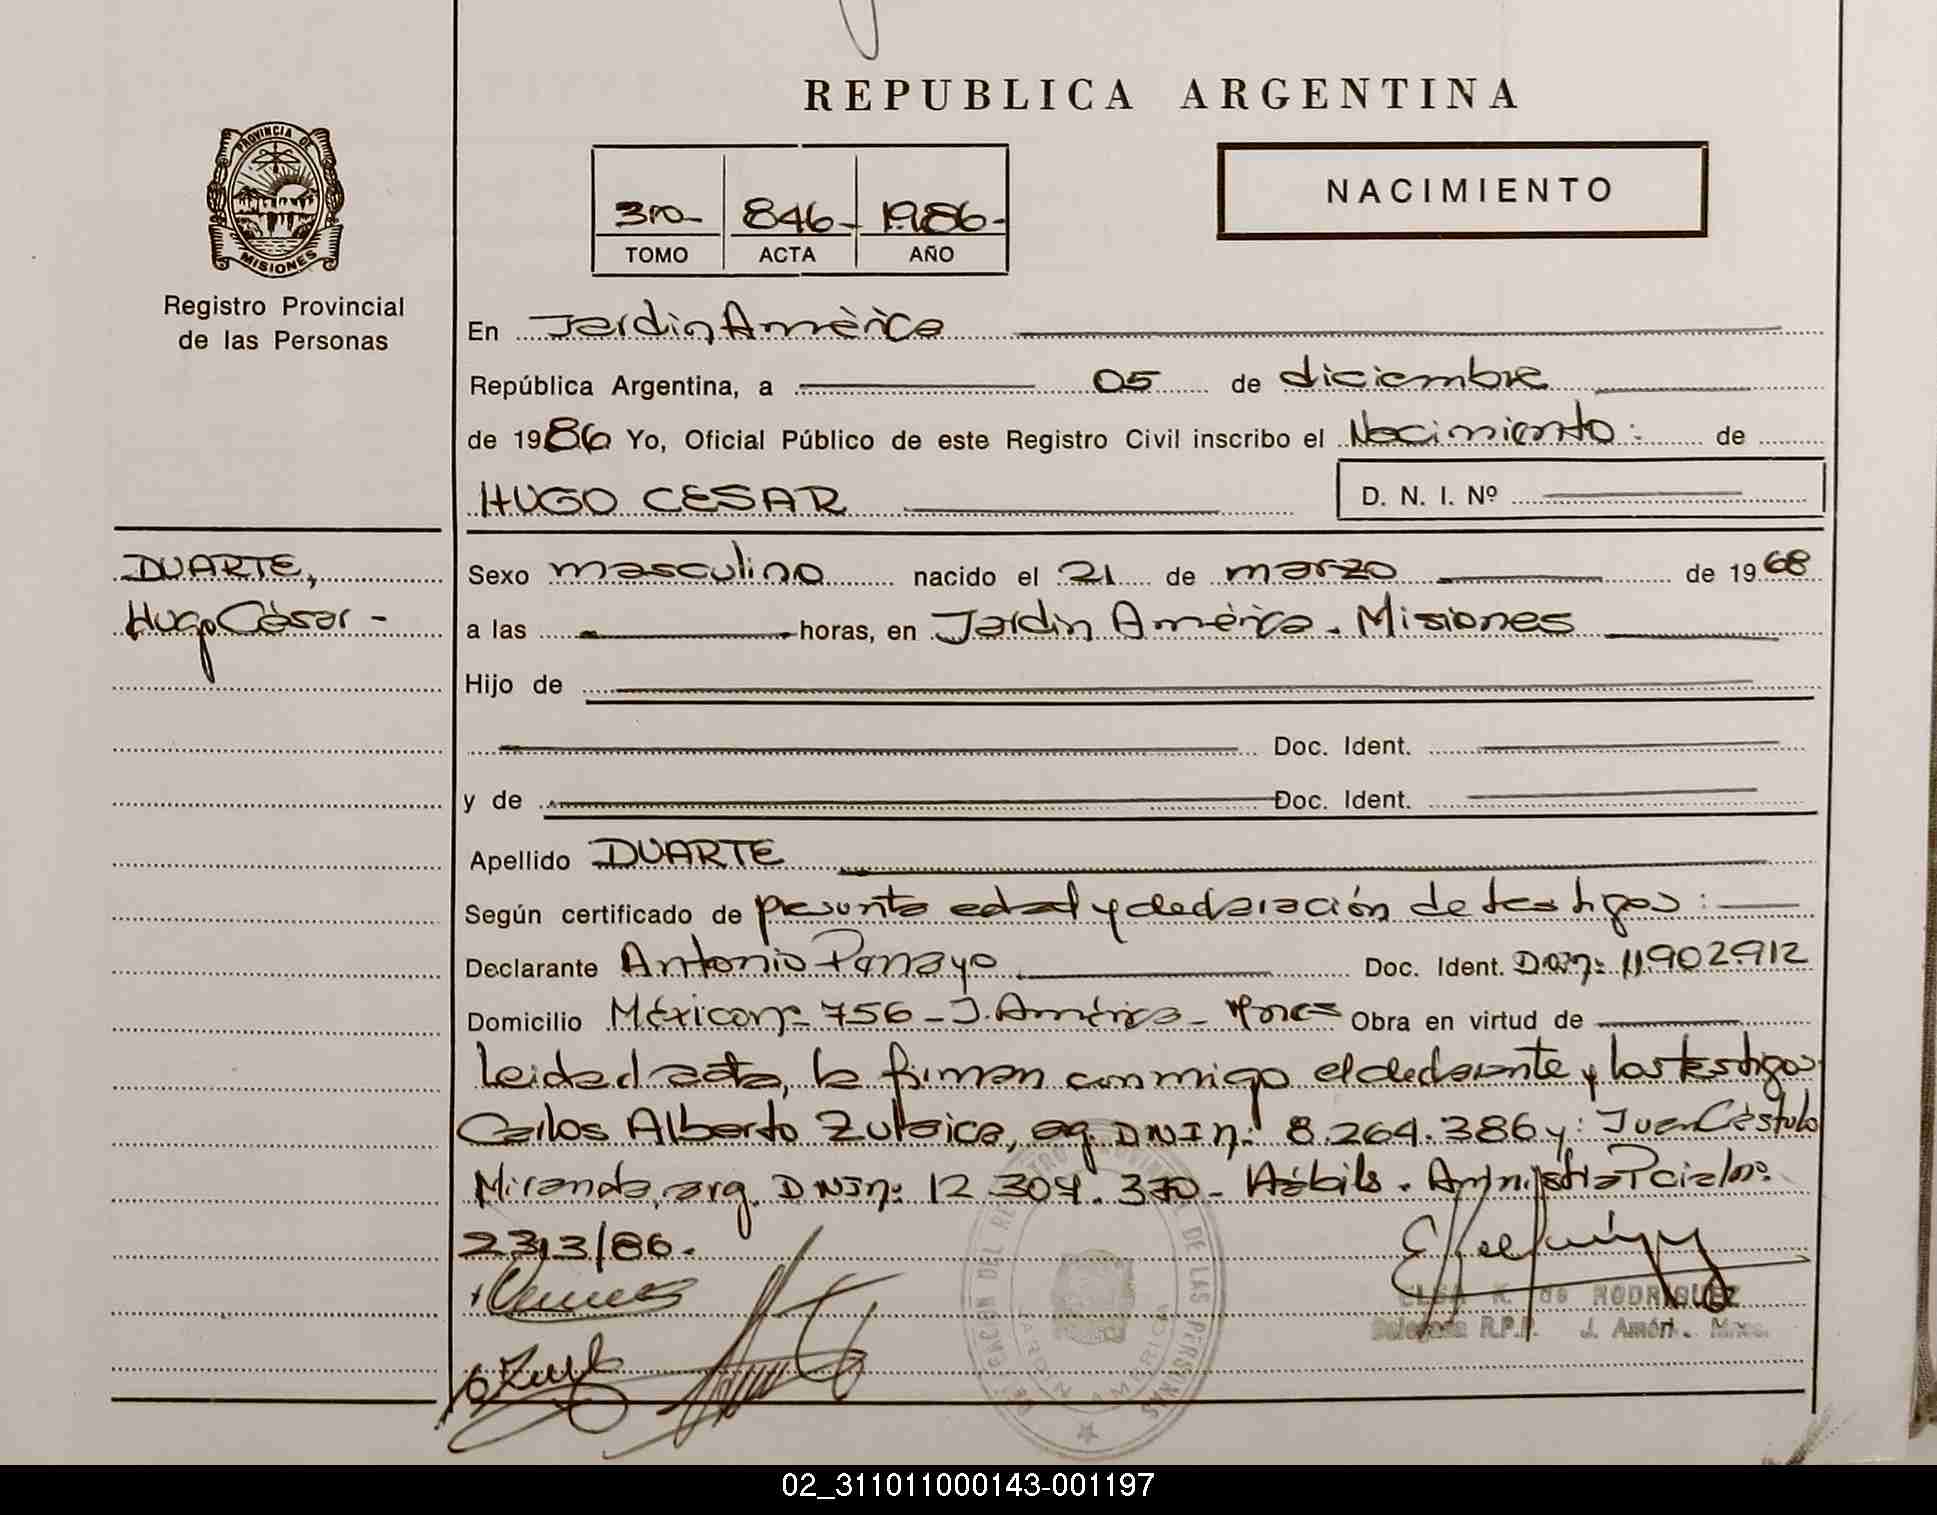 REPUBLICA ARGENTINA
PROVINCIA DE
MISIONES
Registro Provincial
de las Personas
NACIMIENTO
3ro- 846- 1986-
TOMO ACTA AÑO
En Jardin América
República Argentina, a 05 de diciembre
de 1986 Yo, Oficial Público de este Registro Civil inscribo el Nacimiento: de
HUGO CESAR D. N. I. Nº
DUARTE,
Hugo César -
Sexo masculino nacido el 21 de marzo de 1968
a las horas, en Jardin América. Misiones
Hijo de
Doc. Ident.
y de Doc. Ident.
Apellido DUARTE
Según certificado de presunta edad y declaración de testigos:
Declarante Antonio Panayo Doc. Ident. D.N.I.: 11902912
Domicilio México nº 756 - J. América - Mnes Obra en virtud de
Leida el acta, la firman conmigo el declarante y los testigos
Carlos Alberto Zuleica, arg. DNI nº 8.264.386 y: Juan Cástulo
Miranda, arg. DNI nº: 12.304.370 - Hábils. Administra
2313/86.
ELSA K. de RODRIGUEZ
Delegada R.P.P. J. Amér. Mnes.
DELEGACION DEL REGISTRO PROVINCIAL DE LAS PERSONAS
JARDIN AMERICA
02_311011000143-001197